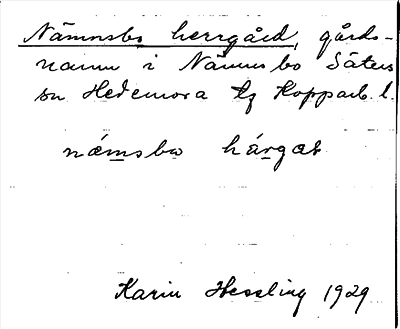 Nämnsbo herrgård, gårds-
namn i Nämnsbo Säters
sn Hedemora tg Kopparb. l.
Karin Hessling 1929